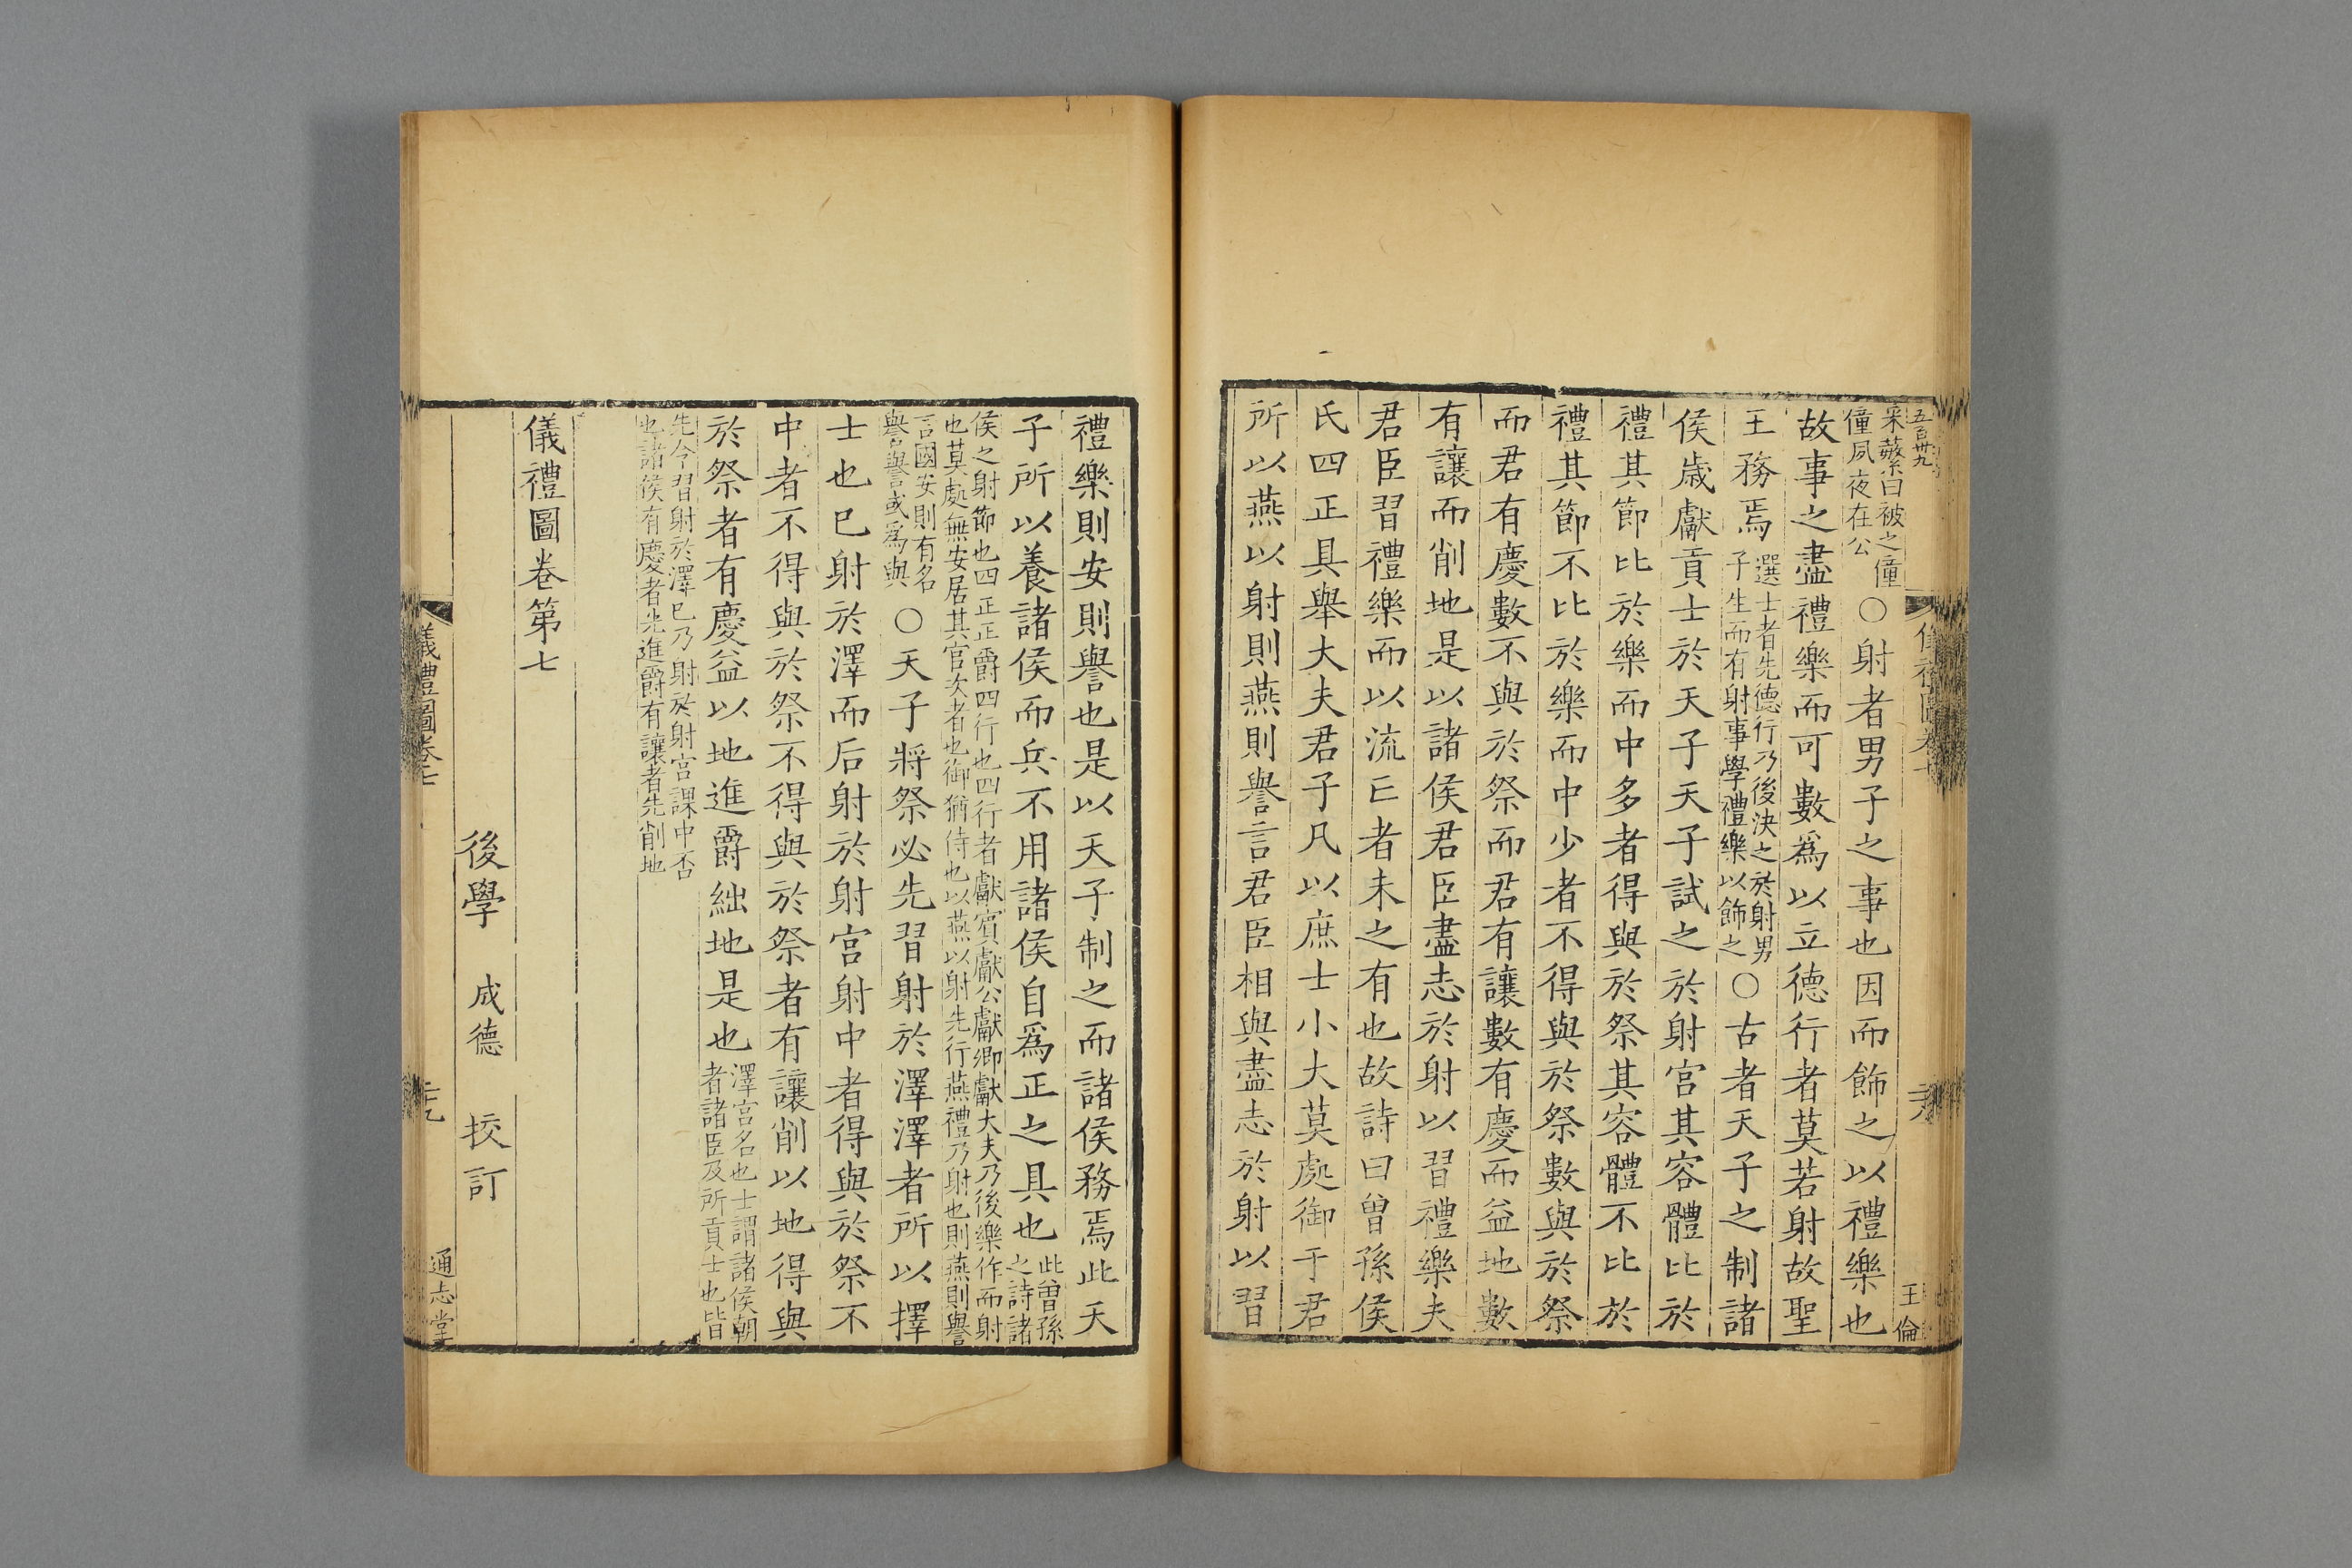 五百卅九
儀禮圖卷七
王倫
采蘩曰被之僮
僮夙夜在公
○射者男子之事也因而飾之以禮樂也
故事之盡禮樂而可數爲以立德行者莫若射故聖
王務焉
選士者先德行乃後決之於射男
子生而有射事學禮樂以飾之
○古者天子之制諸
侯歲獻貢士於天子天子試之於射宮其容體比於
禮其節比於樂而中多者得與於祭其容體不比於
禮其節不比於樂而中少者不得與於祭數與於祭
而君有慶數不與於祭而君有讓數有慶而益地數
有讓而削地是以諸侯君臣盡志於射以習禮樂夫
君臣習禮樂而以流亡者未之有也故詩曰曾孫侯
氏四正具舉大夫君子凡以庶士小大莫處御于君
所以燕以射則燕則譽言君臣相與盡志於射以習
禮樂則安則譽也是以天子制之而諸侯務焉此天
子所以養諸侯而兵不用諸侯自爲正之具也
此曾孫
之詩諸
侯之射節也四正正爵四行也四行者獻賓獻公獻卿獻大夫乃後樂作而射
也莫處無安居其官次者也御猶侍也以燕以射先行燕禮乃射也則燕則譽
言國安則有名
譽譽或爲與
○天子將祭必先習射於澤澤者所以擇
士也已射於澤而后射於射宮射中者得與於祭不
中者不得與於祭不得與於祭者有讓削以地得與
於祭者有慶益以地進爵絀地是也
澤宮名也士謂諸侯朝
者諸臣及所貢士也皆
先令習射於澤已乃射於射宮課中否
也諸侯有慶者先進爵有讓者先削地
儀禮圖卷第七
後學 成德 校訂
儀禮圖卷七
三九
通志堂